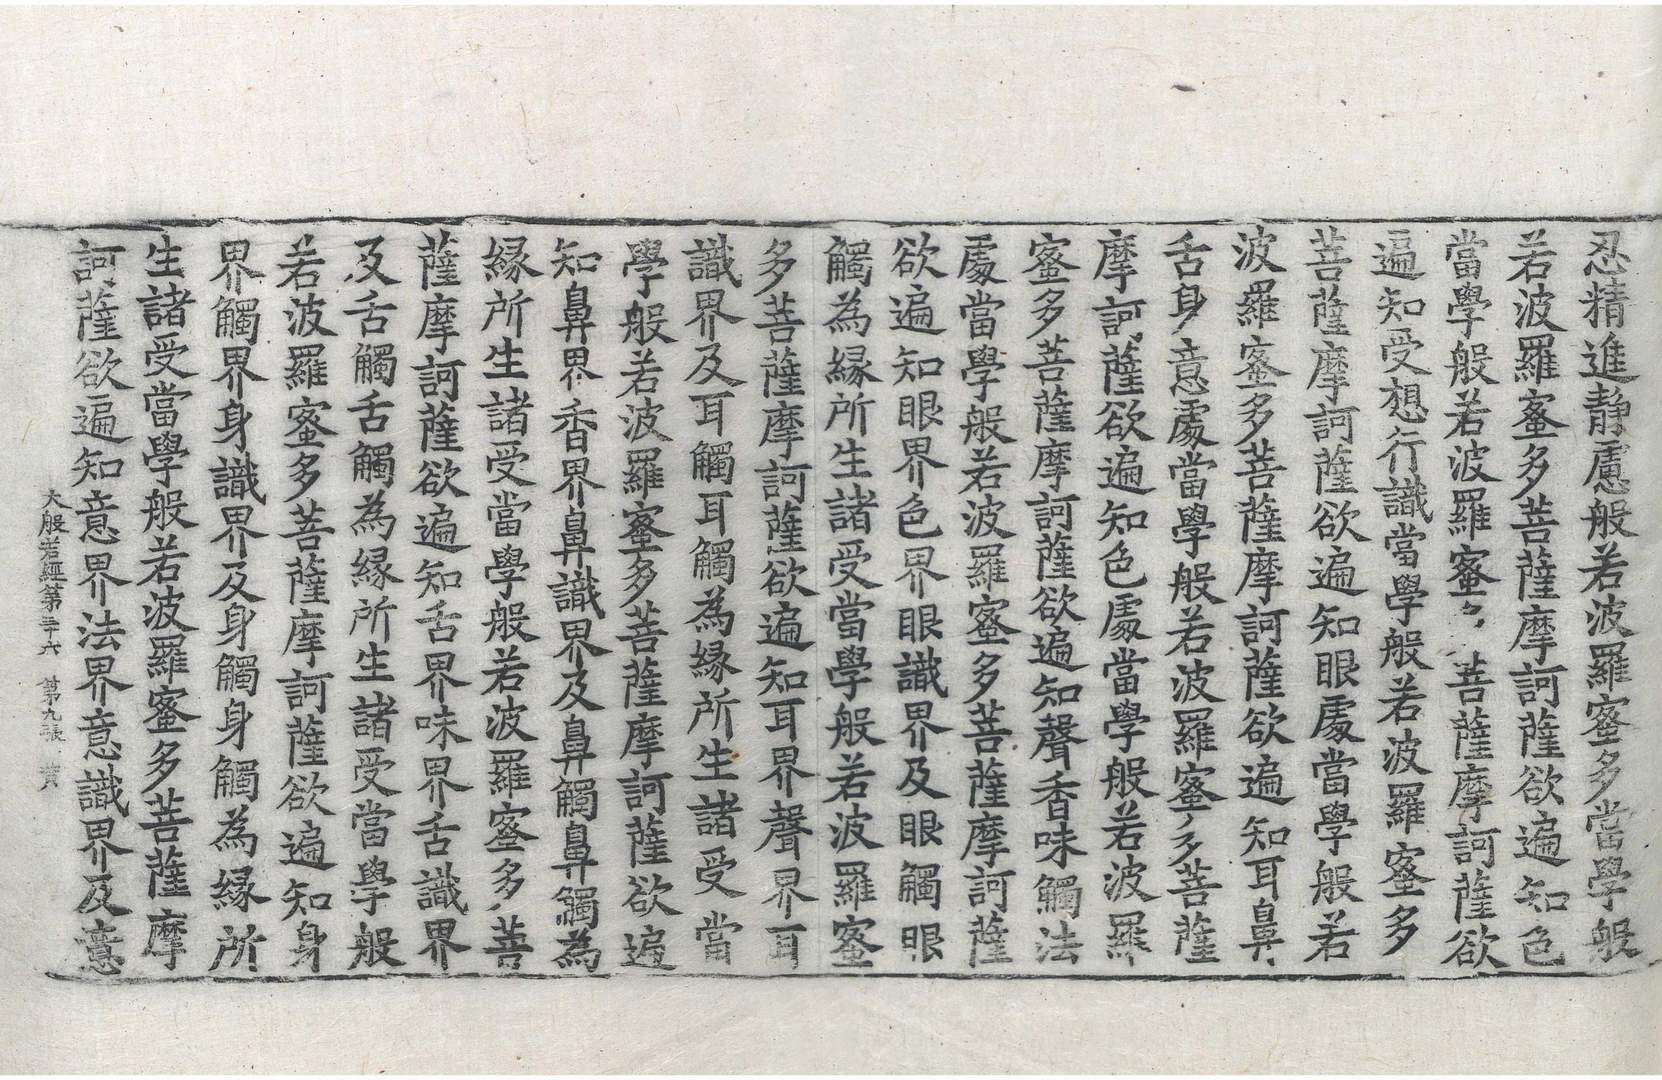 忍精進靜慮般若波羅蜜多當學般
若波羅蜜多菩薩摩訶薩欲遍知色
當學般若波羅蜜多菩薩摩訶薩欲
遍知受想行識當學般若波羅蜜多
菩薩摩訶薩欲遍知眼處當學般若
波羅蜜多菩薩摩訶薩欲遍知耳鼻
舌身意處當學般若波羅蜜多菩薩
摩訶薩欲遍知色處當學般若波羅
蜜多菩薩摩訶薩欲遍知聲香味觸法
處當學般若波羅蜜多菩薩摩訶薩
欲遍知眼界色界眼識界及眼觸眼
觸為緣所生諸受當學般若波羅蜜
多菩薩摩訶薩欲遍知耳界聲界耳
識界及耳觸耳觸為緣所生諸受當
學般若波羅蜜多菩薩摩訶薩欲遍
知鼻界香界鼻識界及鼻觸鼻觸為
緣所生諸受當學般若波羅蜜多菩
薩摩訶薩欲遍知舌界味界舌識界
及舌觸舌觸為緣所生諸受當學般
若波羅蜜多菩薩摩訶薩欲遍知身
界觸界身識界及身觸身觸為緣所
生諸受當學般若波羅蜜多菩薩摩
訶薩欲遍知意界法界意識界及意
大般若經第三十六 第九張